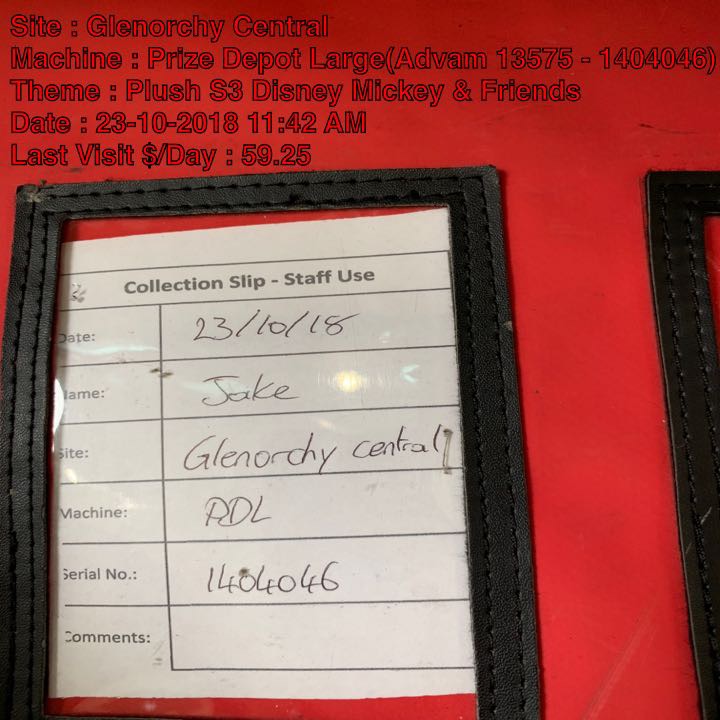 Site : Glenorchy Central
Machine : Prize Depot Large(Advam 13575 - 1404046)
Theme : Plush S3 Disney Mickey & Friends
Date : 23-10-2018 11:42 AM
Last Visit $/Day : 59.25
Collection Slip - Staff Use
Date: 23/10/18
Name: Jake
Site: Glenorchy central
Machine: PDL
Serial No.: 1404046
Comments: